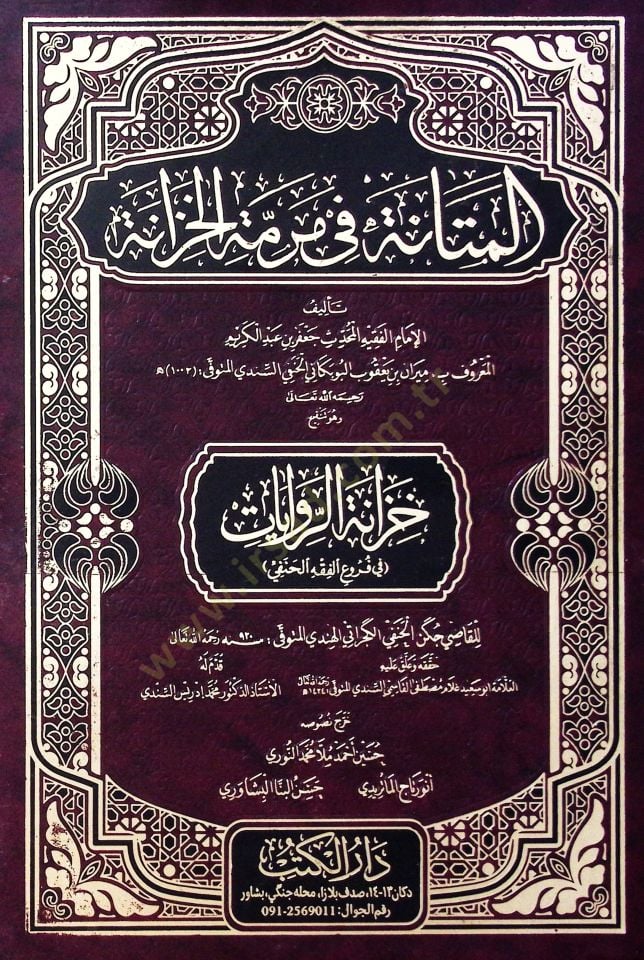 المتانة في مرمة الخزانة
تأليف
الإمام الفقيه المحدث جعفر بن عبد الكريم
المعروف ب ميران بن يعقوب البوبكاني الحنفي السندي المتوفى: (١٠٠٢)ه
رحمه الله تعالى
وهو تنقيح
خزانة الروايات
(في فروع الفقه الحنفي)
للقاضي جكن الحنفي الكجراتي الهندي المتوفى: سنة ٩٢٠ رحمه الله تعالى
حققه وعلق عليه
العلامة ابو سعيد غلام مصطفى القاسمي السندي المتوفى ١٤٢٤ه رحمه الله تعالى
قدم له
الاستاذ الدكتور محمد ادريس السندي
خرج نصوصه
حسين أحمد ملا محمد النوري
أنور تاج الماتريدي
حسن البنا البشاوري
دار الكتب
دكان ١٣-١٤، صدف بلازا، محله جنگي، بشاور
رقم الجوال: 2569011-091
www.irs.com.tr